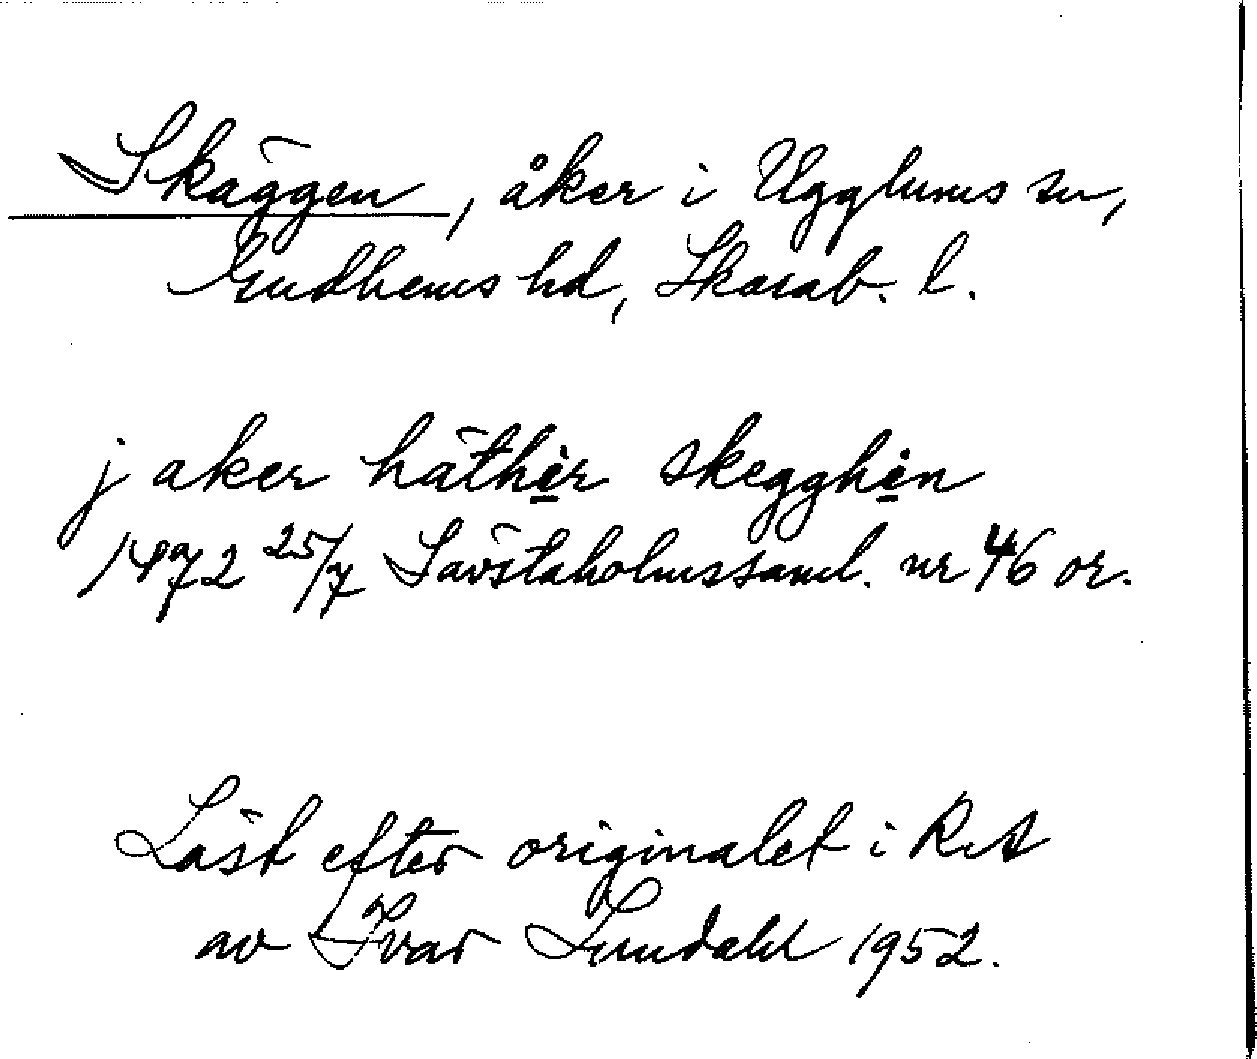 Skäggen, åker i Ugglums sn,
Gudhems hd, Skarab. l.
j aker häther skegghen
1472 25/7 Sävstaholmssaml. nr 46 or.
Läst efter originalet i RA
av Ivar Lundahl 1952.